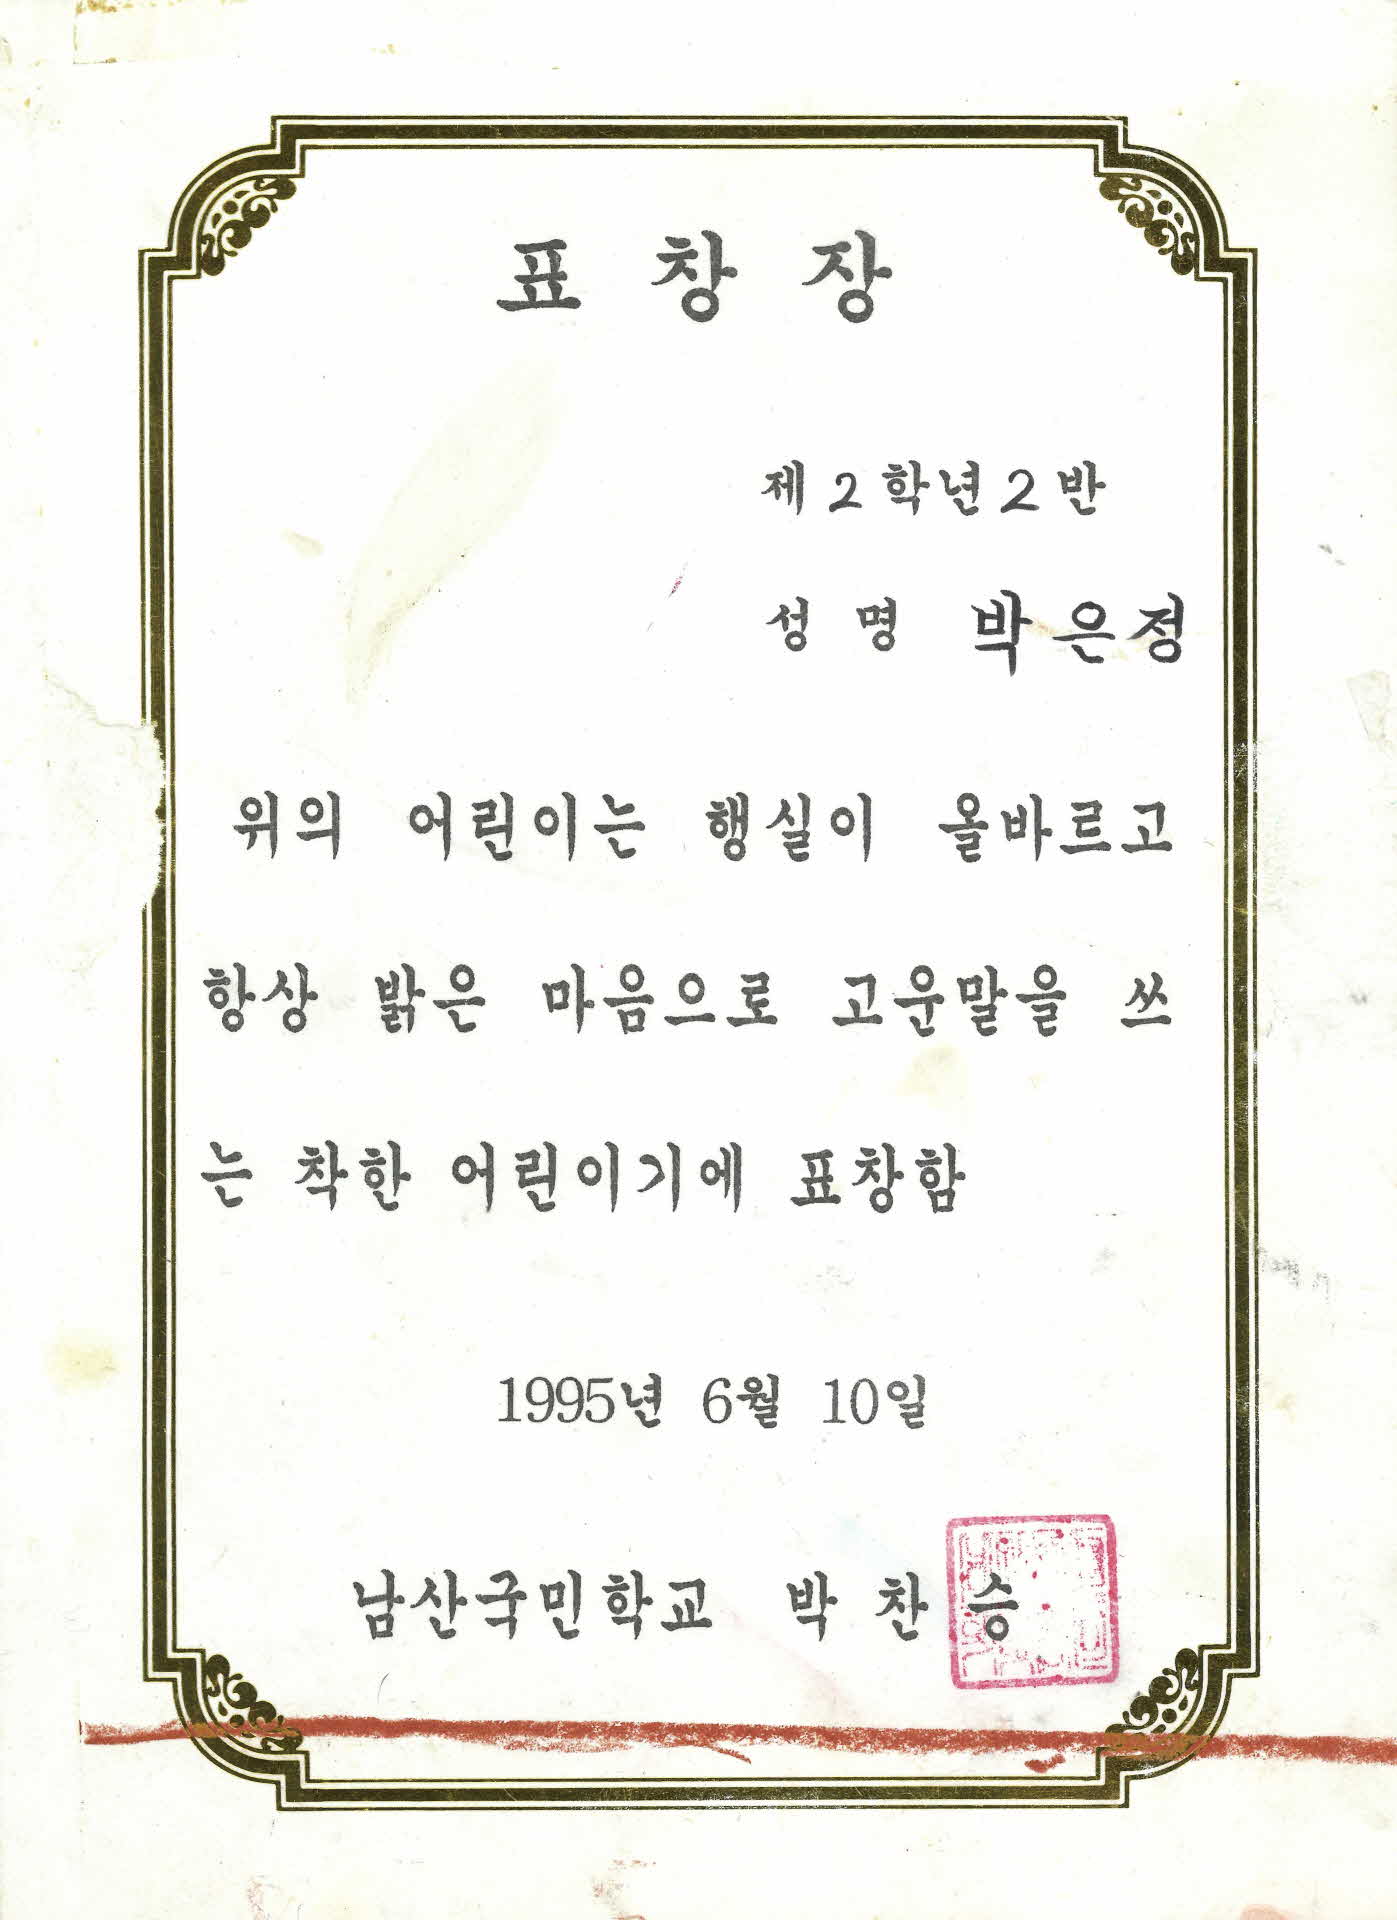 표 창 장
제 2 학년 2 반
성 명 박은정
위의 어린이는 행실이 올바르고
항상 밝은 마음으로 고운말을 쓰
는 착한 어린이기에 표창함
1995년 6월 10일
남산국민학교 박 찬 승